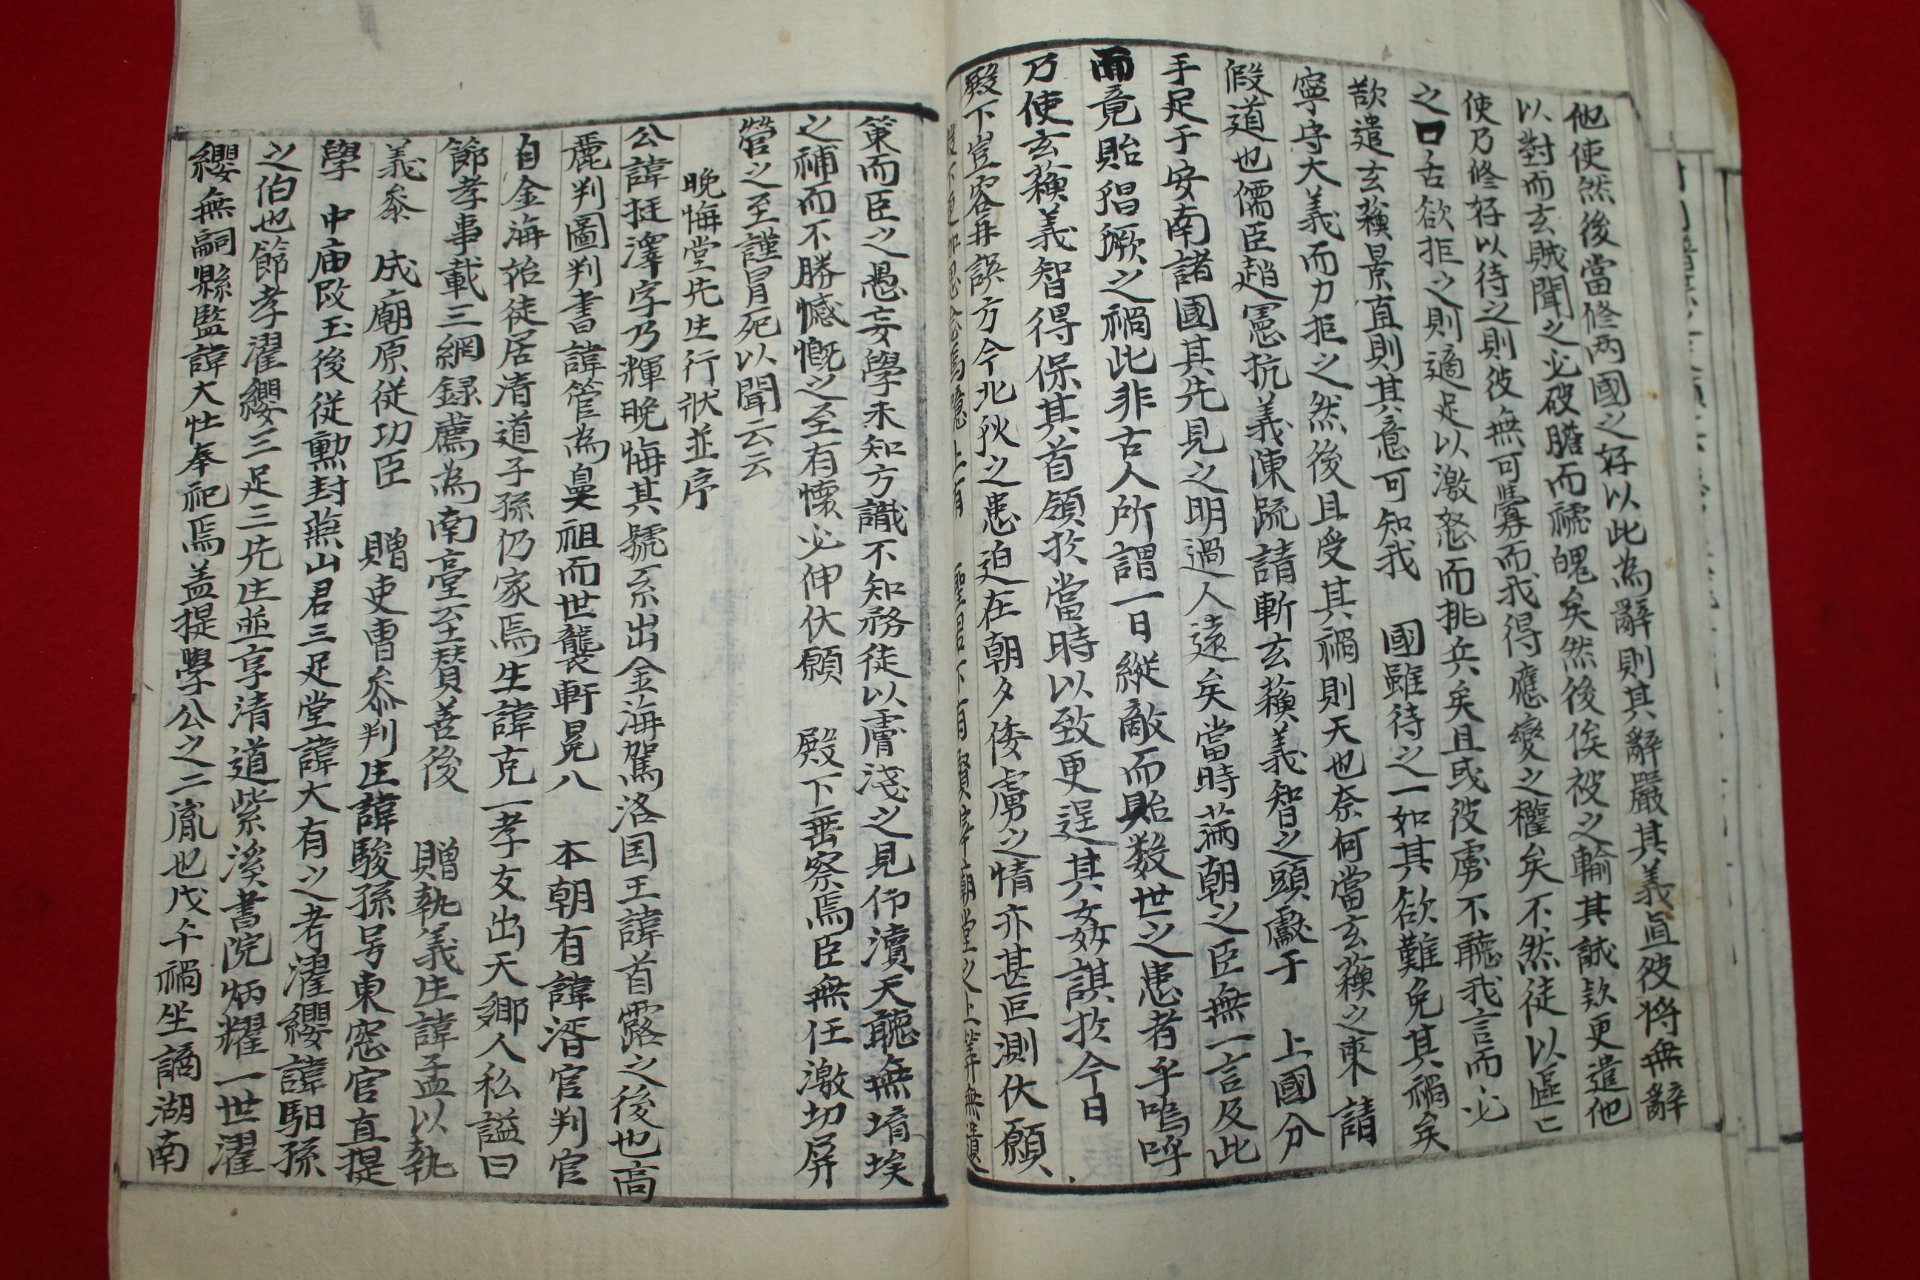 他使然後當修两國之好以此為辭則其辭嚴其義直彼將無辭
以對而玄賊聞之必破膽而禠魄矣然後俟被之輸其誠欵更遣他
使乃修好以待之則彼無可釁而我得應變之權矣不然徒以區〻
之口舌欲拒之則適足以激怒而挑兵矣且或彼虜不聽我言而必
欲遣玄蘓景直則其意可知我　國雖待之一如其欲難免其禍矣
寧守大義而力拒之然後且受其禍則天也奈何當玄蘓之來請
假道也儒臣趙憲抗義陳疏請斬玄蘓義智之頭獻于　上國分
手足于安南諸國其先見之明過人遠矣當時滿朝之臣無一言及此
而竟貽猖獗之禍此非古人所謂一日縱敵而貽数世之患者乎嗚呼
乃使玄蘓義智得保其首領扵當時以致更逞其奸謀扵今日
殿下豈容再誤方今北狄之患迫在朝夕倭虜之情亦甚叵測伏願
策而臣之愚妄學未知方識不知務徒以膚淺之見仰瀆天聽無堉埃
之補而不勝憾慨之至有懷必伸伏願　殿下垂察焉臣無任激切屏
營之至謹冒死以聞云云
晩悔堂先生行狀並序
公諱挺澤字乃輝晩悔其號系出金海駕洛国王諱首露之後也高
麗判圖判書諱管為鼻祖而世襲軒冕八　本朝有諱湑官判官
自金海始徒居清道子孫仍家焉生諱克一孝友出天鄉人私謚曰
節孝事載三綱録薦為南臺至賛善後　贈執義生諱孟以執
義叅　成廟原従功臣　贈吏曹叅判生諱駿孫号東窓官直提
學　中庙改玉後従勲封燕山君三足堂諱大有之考濯纓諱馹孫
之伯也節孝濯纓三足三先生並享清道紫溪書院炳耀一世濯
纓無嗣縣監諱大壮奉祀焉盖提學公之二胤也戊午禍坐謫湖南